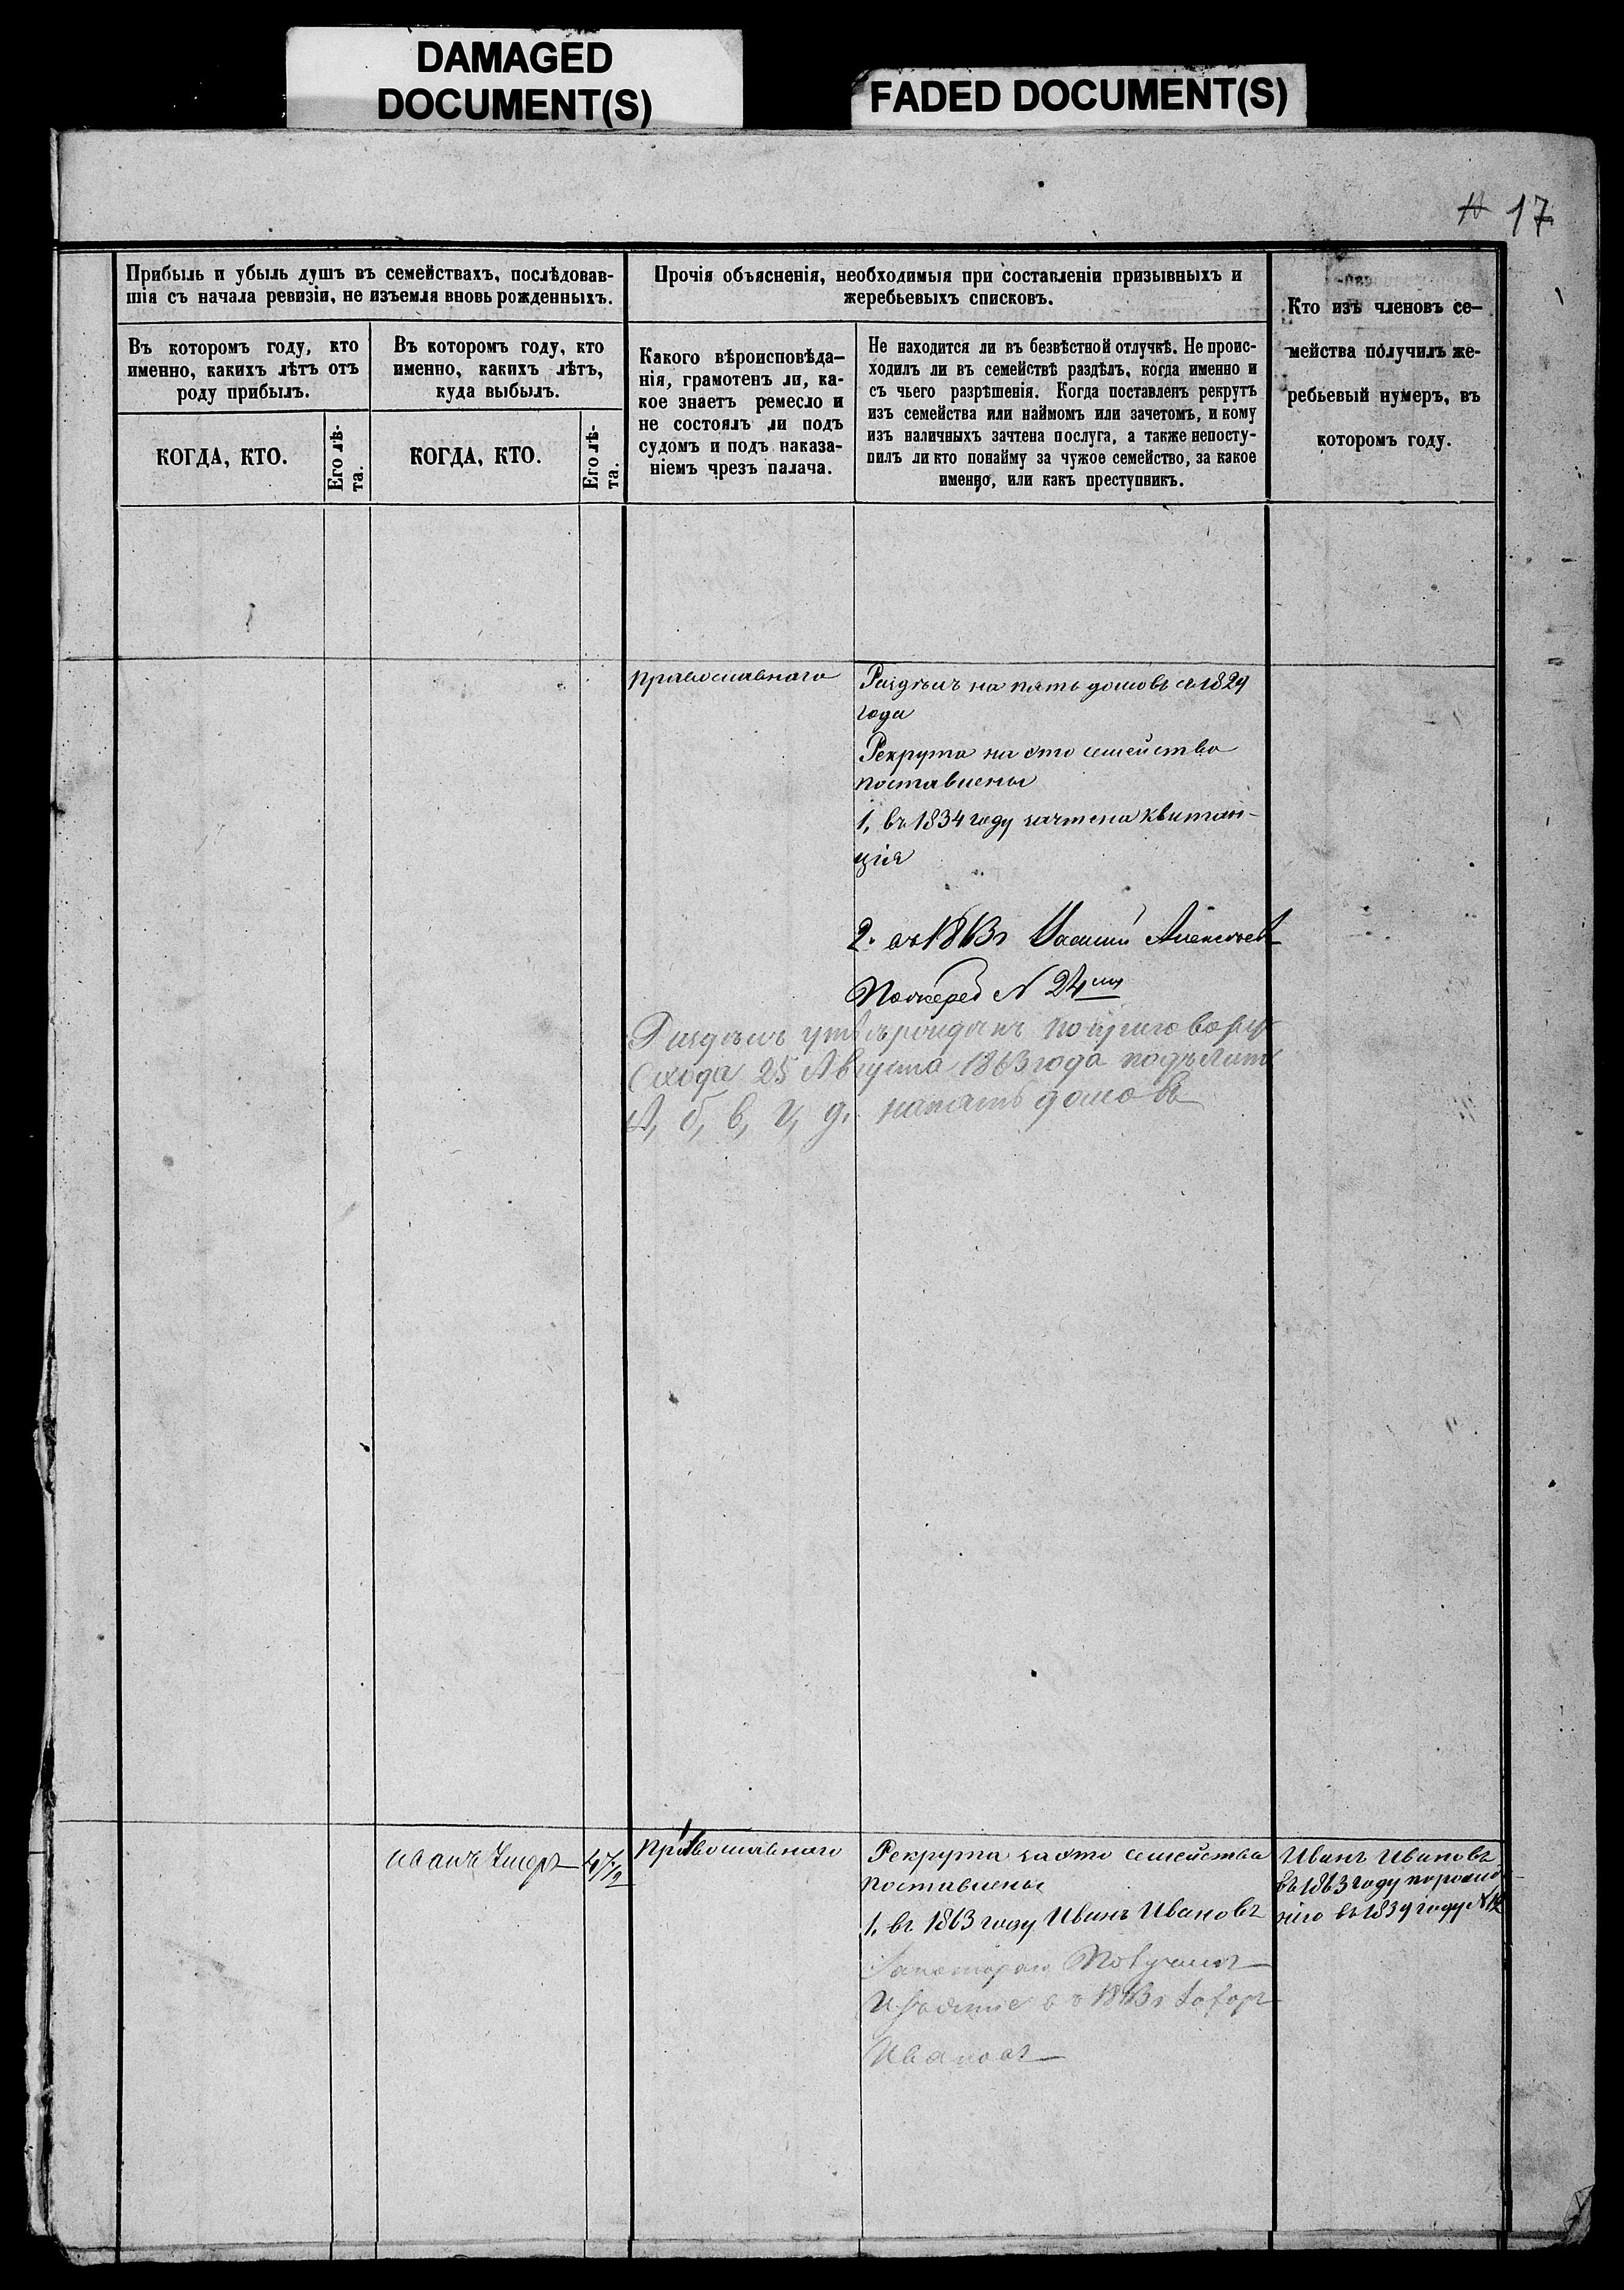 DAMAGED
DOCUMENT(S)
FADED DOCUMENT(S)
17
Прибыль и убыль душъ въ семействахъ, послѣдовав-
шія съ начала ревизіи, не изъемля вновь рожденныхъ.
Въ которомъ году, кто
именно, какихъ лѣтъ отъ
роду прибылъ.
КОГДА, КТО.
Его лѣ-
та.
Въ которомъ году, кто
именно, какихъ лѣтъ,
куда выбылъ.
КОГДА, КТО.
Его лѣ-
та.
Прочія объясненія, необходимыя при составленіи призывныхъ и
жеребьевыхъ списковъ.
Какого вѣроисповѣда-
нія, грамотенъ ли, ка-
кое знаетъ ремесло и
не состоялъ ли подъ
судомъ и подъ наказа-
ніемъ чрезъ палача.
Не находится ли въ безвѣстной отлучкѣ. Не проис-
ходилъ ли въ семействѣ раздѣлъ, когда именно и
съ чьего разрѣшенія. Когда поставленъ рекрутъ
изъ семейства или наймомъ или зачетомъ, и кому
изъ наличныхъ зачтена послуга, а также непосту-
пилъ ли кто понайму за чужое семейство, за какое
именно, или какъ преступникъ.
Кто изъ членовъ се-
мейства получилъ же-
ребьевый нумеръ, въ
которомъ году.
православнаго
Раздѣлъ на пять домовъ съ 1829
года
Рекрута на это семейство
поставлены
1, въ 1834 году зачтена квитан-
ція
2. въ 1863 г Алексѣевъ
N 24
Раздѣлъ утвержденъ по приговору
Схода 25 Августа 1863 года подѣлить
А, б, в, г, д. на пять домовъ
иванъ Умеръ
Православнаго
Рекрута за это семейство
поставлены
1, въ 1863 году Иванъ Ивановъ
въ 1863 г
Ивановъ
Иванъ Ивановъ
въ 1863 году
въ 1839 году N 12